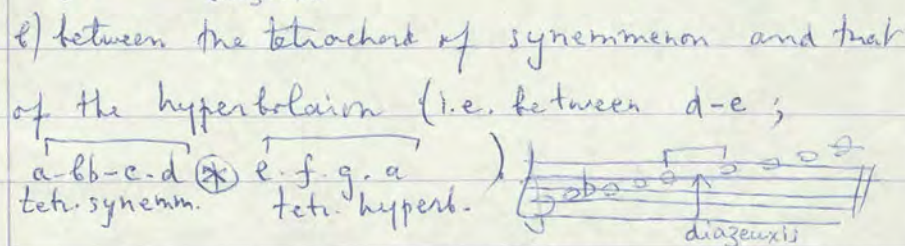 b) between the tetrachord of synemmenon and that
of the hyperbolaion (i.e. between d-e ;
a-bb-c-d * e.f.g.a ).
tetr. synemm. tetr. hyperb.
diazeuxis